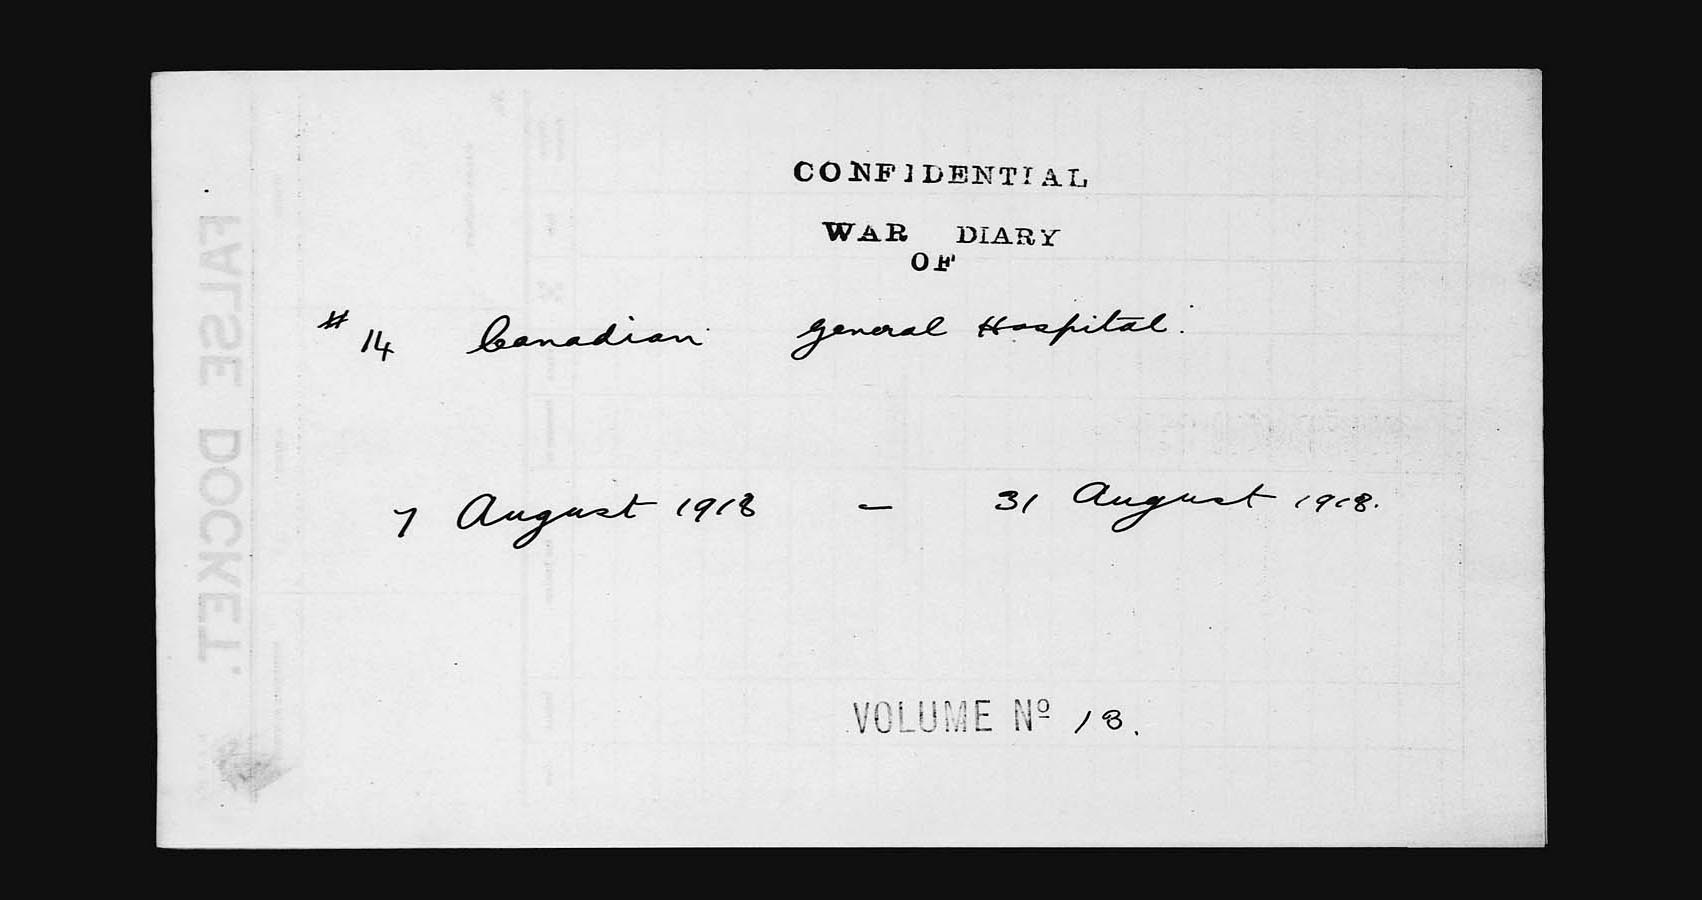 CONFIDENTIAL
WAR DIARY
OF
# 14 Canadian General Hospital.
7 August 1918 – 31 August 1918.
VOLUME Nº 18.
FALSE DOCKET.